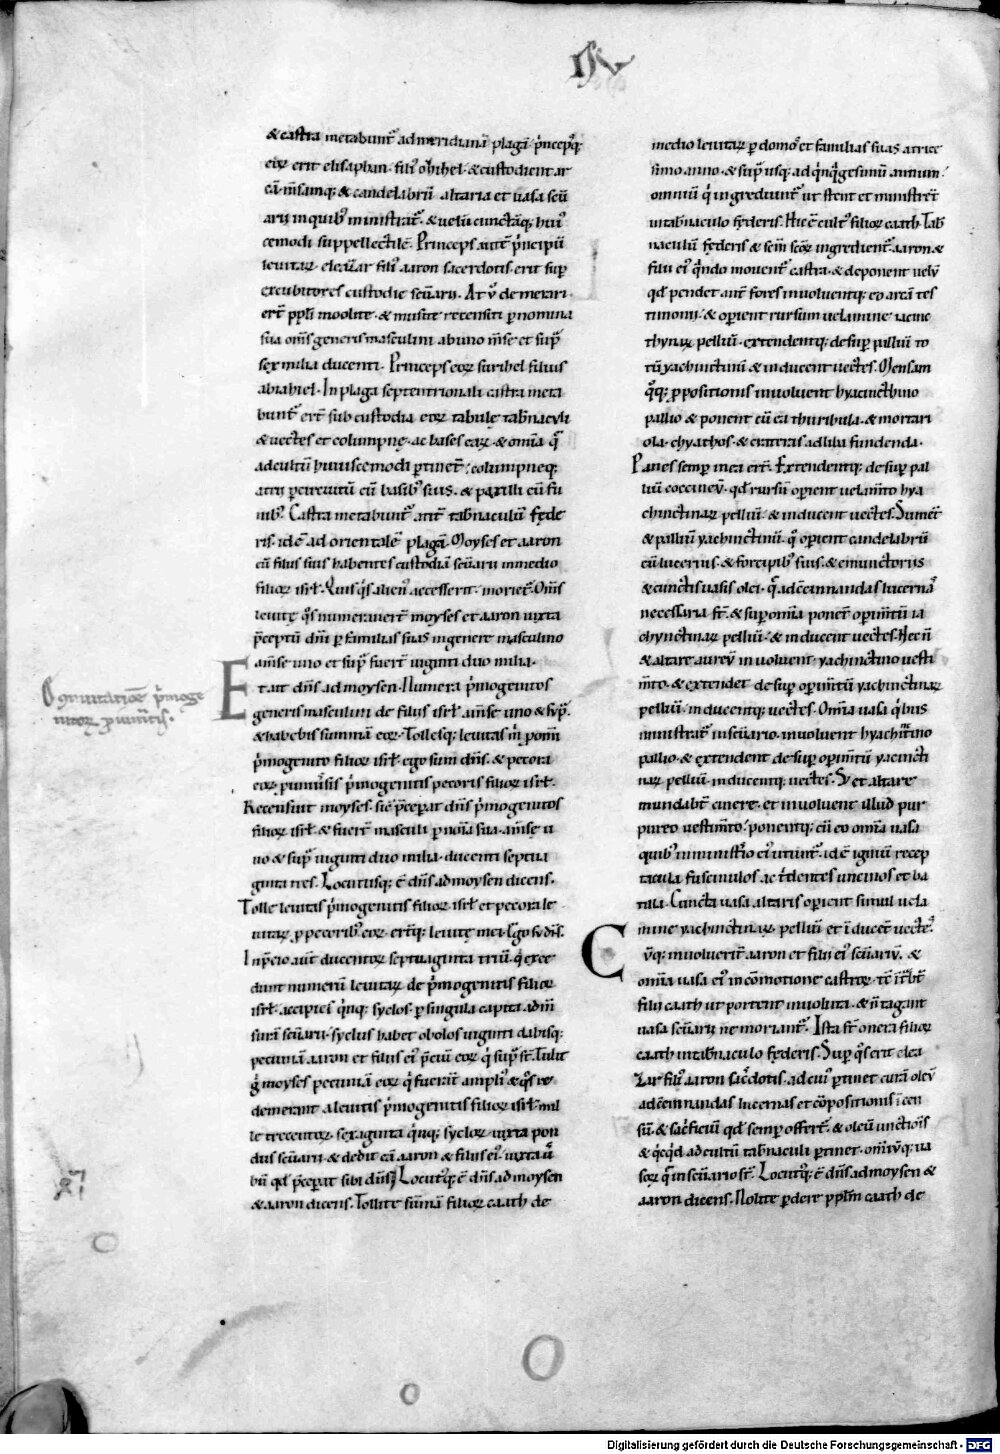 & castra metabunt᷑ ad meridianā plagā. p̄ncepsq;
eoꝝ erit elisaphan filiꝰ ozihel. & custodient ar
cā. m̄samq; & candelabrū altaria et uasa scū
arii in quibꝰ ministrat᷑. & uelū cunctāq; huiꝰ
cemodi suppellectilē. Princeps aut̄ p̄ncipū
leuitaꝝ. eleazar filiꝰ aaron sacerdotis. erit sup̄
excubitores custodie scūarii. At ů de merari
err̄t pp̄li moolite. & musite recensiti p̄ nomina
sua om̄s generis masculini ab uno m̄se et sup̄
sex milia ducenti. Princeps eoꝝ surihel filius
abiahiel. In plaga septentrionali castra meta
bunt᷑. err̄t sub custodia eoꝝ tabule tab̄naculi
& uectes et columpnę. ac bases eaꝝ. & om̄ia q̄
ad cultū huiuscemodi p̄tinet᷑. columpneq;
atrii p̄ circuitū cū basibꝰ suis. & paxilli cū fu
nibꝰ. Castra metabunt᷑ ant̄ tab̄naculū fęde
ris. id ē ad orientalē plagā. Moyses et aaron
cū filiis suis habentes custodiā scūarii in medio
filioꝝ isrł. Quisq̇s alienꝰ accesserit. moriet᷑. Om̄s
leuitę q̇s numerauer̄t moyses et aaron iuxta
p̄ceptū dn̄i p̄ familias suas in genere masculino
a m̄se uno et sup̄ fuer̄t uiginti duo milia.
Et ait dn̄s ad moysen. Numera p̄mogenitos
generis masculini de filiis isrł. a m̄se uno & sup̄.
& habebis summā eoꝝ. Tollesq; leuitas m̄ p̄ om̄i
p̄mogenito filioꝝ isrł. ego sum dn̄s. & pecora
eoꝝ p̄ uniu̇sis p̄mogenitis pecoris filioꝝ isrł.
Recensuit moyses. sic̄ p̄cepat dn̄s p̄mogenitos
filioꝝ isrł. & fuer̄t masculi p̄ noīa sua. a m̄se u
no & sup̄ uiginti duo milia. ducenti septua
ginta tres. Locutusq; ē dn̄s ad moysen dicens.
Tolle leuitas p̄ mogenitis filioꝝ isrł et pecora le
uitaꝝ p̄ pecoribꝰ eoꝝ. err̄tq; leuitę mei. Ego sū dn̄s.
In p̄cio aut̄ ducentoꝝ septuaginta triū. q̇ exce
dunt numerū leuitaꝝ de p̄mogenitis filioꝝ
isrł. accipies q̇nq; syclos. p̄ singula capita ad m̄
surā scūarii. syclus habet obolos uiginti dabisq;
pecuniā aaron et filiis eiꝰ p̄ciū eoꝝ q̇ sup̄ sr̄. Tulit
g̊ moyses pecuniā eoꝝ q̇ fuerāt ampliꝰ & q̇s re
demerant a leuitis p̄mogenitis filioꝝ isrł. mil
le trecentoꝝ. sexaginta q̇nq; sycloꝝ iuxta pon
dus scūarii. & dedit eā aaron & filiis eiꝰ. iuxta ů
bū qd p̄ceperat sibi dn̄s. Locutꝰq; ē dn̄s ad moysen
& aaron dicens. Tollite sūmā filioꝝ caath de
Cōmutatiōe p̄moge
nitoꝝ
medio leuitaꝝ p̄ domos et familias suas a trice
simo anno. & sup̄ usq; ad q̇nq̇gesimū annum.
omniū q̇ ingrediunt᷑ ut stent et ministrēt
in tab̄naculo fęderis. Hic ē cultꝰ filioꝝ caath. Tab̄
naculū fęderis & scm̄ scōꝝ ingredient᷑. aaron &
filii eiꝰ q̇ndo mouent᷑ castra. & deponent uelū
qd pendet ant̄ fores inuoluentq; eo arcā tes
timonii. & op̄ient rursum uelamine iacinc
thinaꝝ pelliū. extendentq; de sup̄ palliū to
tū yachinctinū & inducent uectes. Mensam
q̊q; p̄positionis inuoluent hyacincthino
pallio & ponent cū ea thuribula. & mortari
ola. chyathos. & crateras ad liba fundenda.
Panes semp̄ in ea err̄t. Extendentq; de sup̄ pal
liū coccineū. qd rursū op̄ient uelam̄to hya
chinctinaꝝ pelliū. & inducent uectes. Sument
& palliū yachinctinū. q̊ op̄ient candelabrū
cū lucernis. & forcipibꝰ suis. & emunctoriis
& cunctis uasis olei. q̄ ad c̄cinnandas lucernas
necessaria sr̄t. & sup̄ om̄ia ponēt op̄im̄tū ia
chynctinaꝝ pelliū. & inducent uectes. Necn̄
& altare aureū inuoluent yachinctino uesti
m̄to. & extendet de sup̄ op̄im̄tū yachinctinaꝝ
pelliū. inducentq; uectes. Om̄ia uasa q̇bus
ministrat᷑ in scūario. inuoluent hyachinctino
pallio. & extendent de sup̄ op̄im̄tū yacincti
naꝝ pelliū. inducentq; uectes. Sꝫ et altare
mundabt̄ cinere. et inuoluent illud pur
pureo uestim̄to. ponentq; cū eo om̄ia uasa
quibꝰ in ministio eiꝰ utunt᷑. id ē igniū recep
tacula fuscinulas ac t̊dentes uncinos et ba
tilla. Cuncta uasa altaris op̄ient simul uela
mine yachinctinaꝝ pelliū et īducēt uectes.
Cūq; inuoluerīt aaron et filii eiꝰ scūariū. &
omīa uasa eiꝰ in cōmotione castroꝝ. tc̄ intrabt̄
filii caath ut portent inuoluta. & n̄ tagant
uasa scūarii ne moriant᷑. Ista sr̄t onera filioꝝ
caath in tab̄naculo fęderis. Sup̄ q̇s erit elea
zar filiꝰ aaron sac̄dotis. ad cuiꝰ p̄tinet curā olei
ad c̄cinnandas lucernas et cōpositionis īcen
sū. & sac̊ficiū qd semp̄ offert᷑. & oleū unctiōis
& q̇cq̇d ad cultū tab̄naculi p̄tinet. om̄iūq; ua
soꝝ q̄ in scūario sr̄t. Locutꝰq; ē dn̄s ad moysen &
aaron dicens. Nolite p̄dere pp̄lm caath de
Digitalisierung gefördert durch die Deutsche Forschungsgemeinschaft - DFG